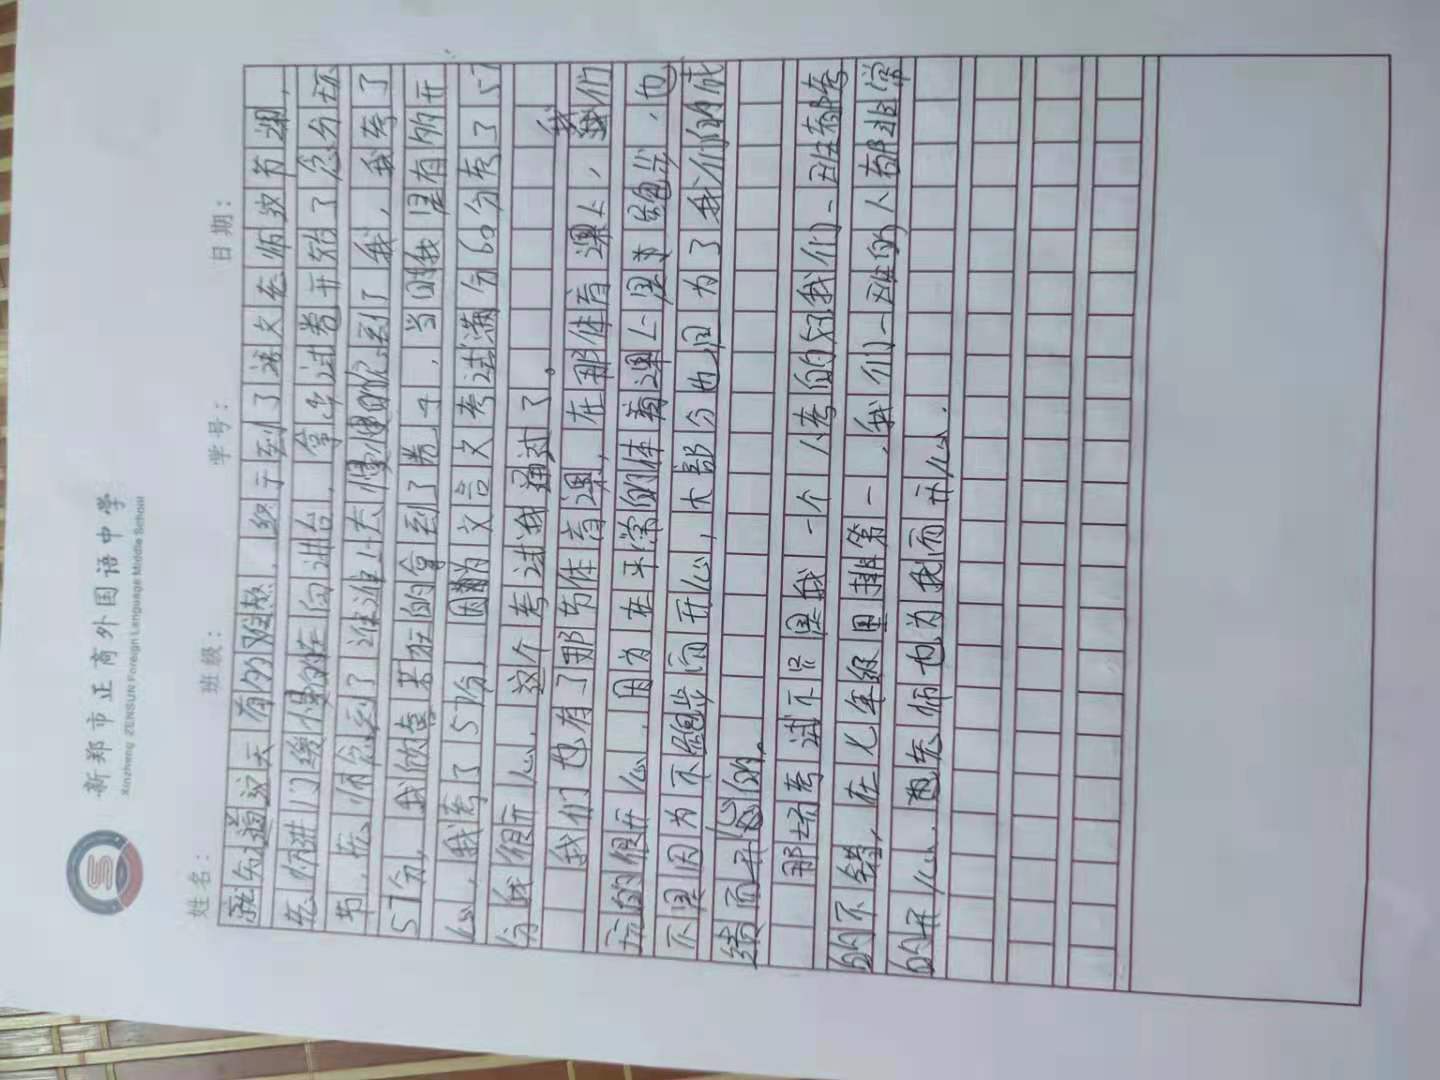 新郑市正商外国语中学
Xinzheng ZENSUN Foreign Language Middle School
姓名： 班级： 学号： 日期：
这天有外对熱，终于到了语文老师致节课，
老师进门缓慢的在向讲台，拿平试卷开始了念分环
节，老师念到了谁谁上去慢慢的念到了我，我考了
57分，我欣喜若狂的拿到了卷子，当时我是有的开
心，我考了57分，因为文言文考试满分60分考了57
分我很开心，这个考试我通过了。
我们也有了那节体育课，在那体育课上，我们
玩的很开心，因为在平常的体育课上是要跑步，也
不是因为不跑步而开心，大部分也因为了我们的成
绩而开心的。
那场考试不只是我一个人考的好我们一班都考
的不错，在七年级里排第一，我们一班的人都非常
的开心，老师也为我而开心。